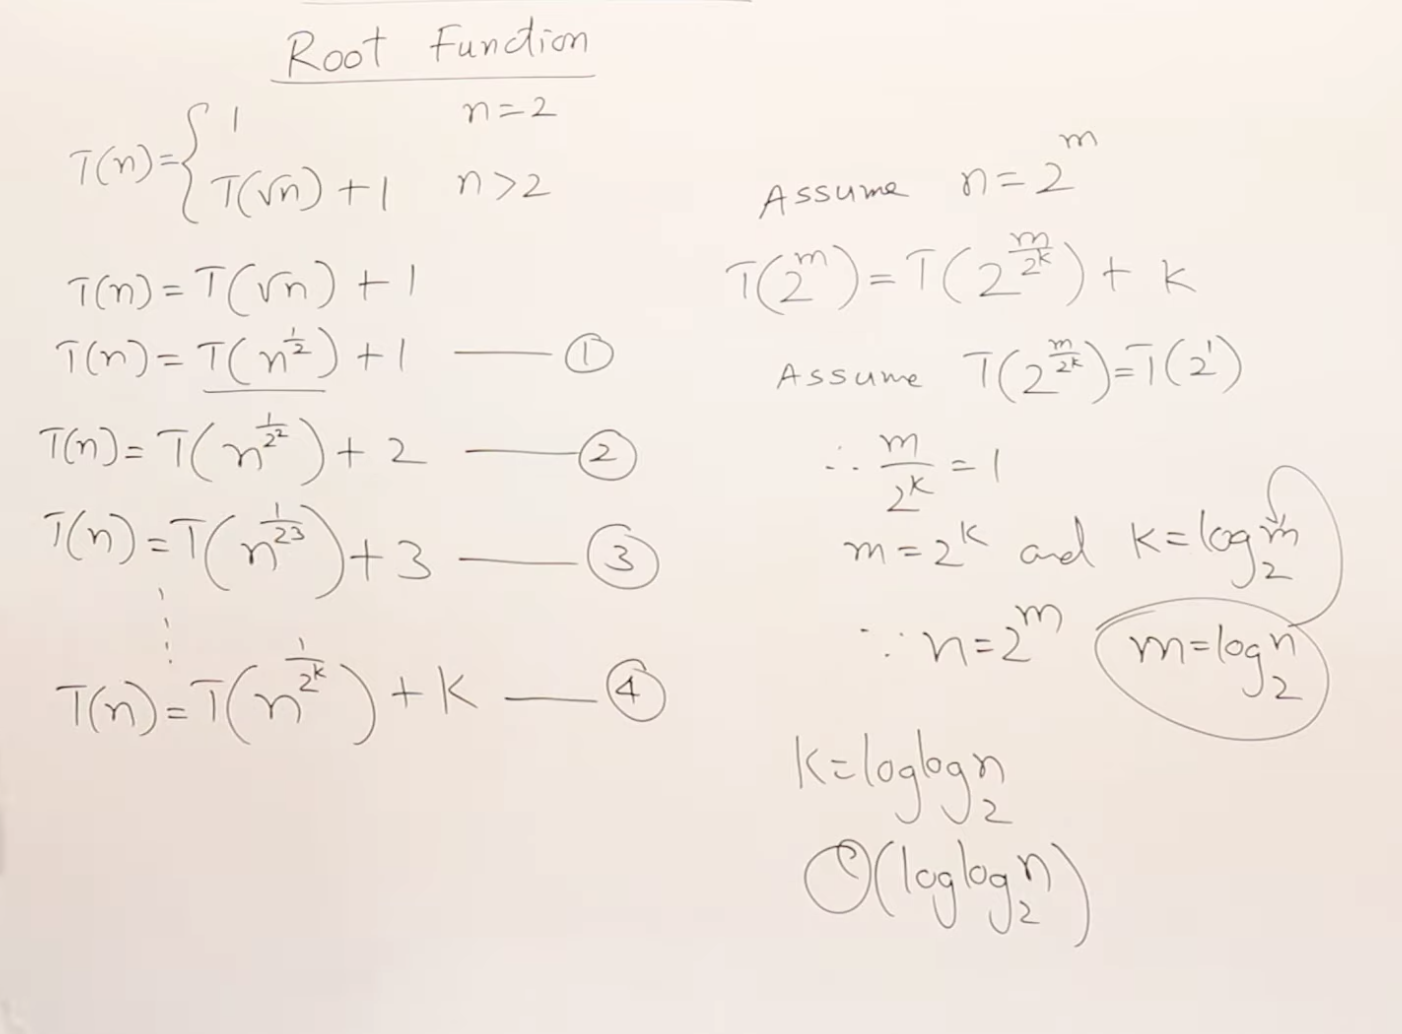 Root Function
T(n)= { 1 n=2
T(√n) +1 n>2
T(n) = T(√n) + 1
T(n) = T(n^{1/2}) + 1 —— ①
T(n) = T(n^{1/2^2}) + 2 —— ②
T(n) = T(n^{1/2^3}) + 3 —— ③
T(n) = T(n^{1/2^k}) + k —— ④
Assume n = 2^m
T(2^m) = T(2^{m/2^k}) + k
Assume T(2^{m/2^k}) = T(2^1)
∴ m/2^k = 1
m = 2^k and k = log_2 m
∵ n = 2^m m = log_2 n
k = log log_2 n
O(log log_2 n)